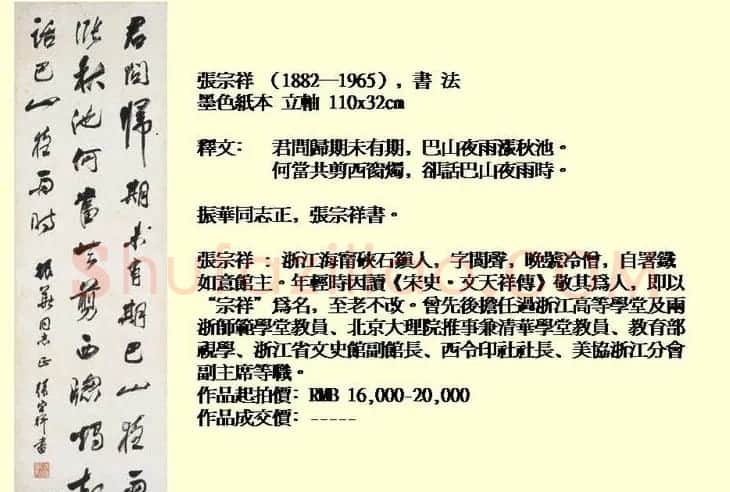 君問歸期未有期巴山夜雨
漲秋池何當共剪西窗燭卻
話巴山夜雨時
振華同志正 張宗祥書
張宗祥 (1882—1965), 書 法
墨色紙本 立軸 110x32cm
釋文: 君問歸期未有期, 巴山夜雨漲秋池。
何當共剪西窗燭, 卻話巴山夜雨時。
振華同志正, 張宗祥書。
張宗祥 : 浙江海甯硤石鎮人, 字閬聲, 晚號冷僧, 自署鐵
如意館主。年輕時因讀《宋史·文天祥傳》敬其爲人, 即以
“宗祥”爲名, 至老不改。曾先後擔任過浙江高等學堂及兩
浙師範學堂教員、北京大理院推事兼清華學堂教員、教育部
視學、浙江省文史館副館長、西令印社社長、美協浙江分會
副主席等職。
作品起拍價: RMB 16,000-20,000
作品成交價: -----
Shufaziliao.COM